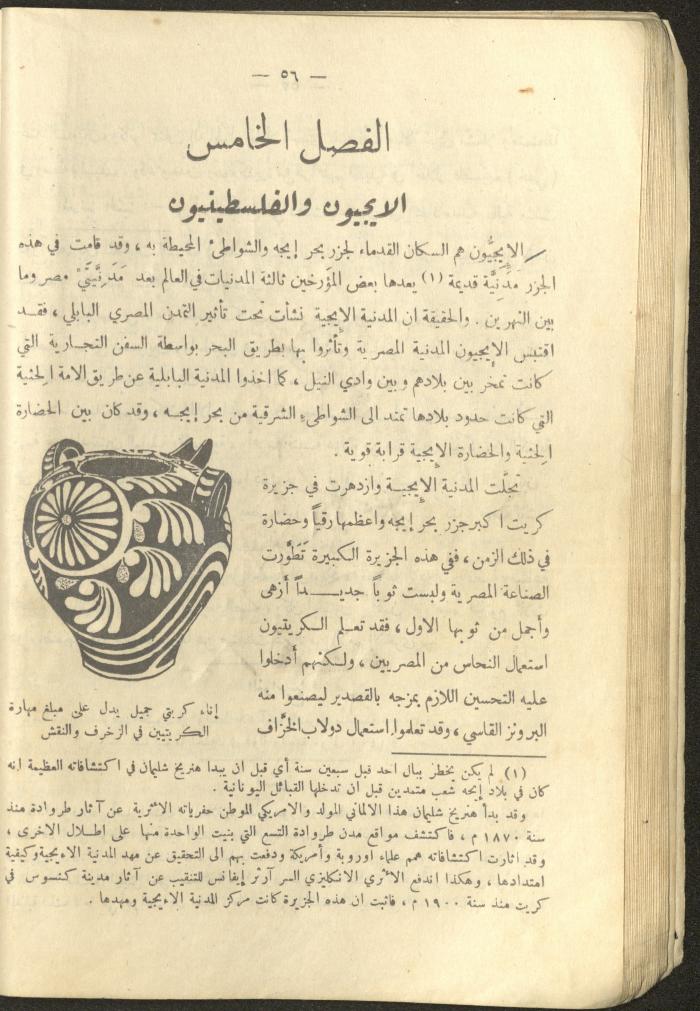 — ٥٦ —
الفصل الخامس
الايجيون والفلسطينيون
الإيجيُّون هم السكان القدماء لجزر بحر إيجه والشواطئ المحيطة به ، وقد قامت في هذه
الجزر مَدَنِيَّة قديمة (١) يعدها بعض المؤرخين ثالثة المدنيات في العالم بعد مَدَنِيَّتَيْ مصر وما
بين النهرين . والحقيقة ان المدنية الإيجية نشأت تحت تأثير التمدن المصري البابلي ، فقــد
اقتبس الإيجيون المدنية المصرية وتأثروا بها بطريق البحر بواسطة السفن التجارية التي
كانت تمخر بين بلادهم وبين وادي النيل ، كما اخذوا المدنية البابلية عن طريق الامة الحثية
التي كانت حدود بلادها تمتد الى الشواطىء الشرقية من بحر إيجـه ، وقد كان بين الحضارة
الحثية والحضارة الإيجية قرابة قوية .
تجلَّت المدنية الإيجيـة وازدهرت في جزيرة
كريت اكبر جزر بحر إيجه واعظمها رقياً وحضارة
في ذلك الزمن ، ففي هذه الجزيرة الكبيرة تَطَوَّرت
الصناعة المصرية ولبست ثوباً جديـــداً أزهى
وأجمل من ثوبها الاول ، فقد تعلـم الكريتيون
استعمال النحاس من المصريين ، ولكنهم أدخلوا
عليه التحسين اللازم بمزجه بالقصدير ليصنعوا منه
البرونز القاسي ، وقد تعلموا استعمال دولاب الخزَّاف
إناء كريتي جميل يدل على مبلغ مهارة
الكريتيين في الزخرف والنقش
(١) لم يكن يخطر ببال احد قبل سبعين سنة أي قبل ان يبدا هنريخ شليمان في اكتشافاته العظيمة انه
كان في بلاد إيجه شعب متمدين قبل ان تدخلها القبائل اليونانية .
وقد بدأ هنريخ شليمان هذا الالماني المولد والامريكي الموطن حفرياته الاثرية عن آثار طروادة منذ
سنة ١٨٧٠ م ، فاكتشف مواقع مدن طروادة التسع التي بنيت الواحدة منها على اطلال الاخرى ،
وقد اثارت اكتشافاته همم علماء اوروبة وأمريكة ودفعت بهم الى التحقيق عن مهد المدنية الاءيجية وكيفية
امتدادها ، وهكذا اندفع الاثري الانكليزي السر آرثر إيفانس للتنقيب عن آثار مدينة كنسوس في
كريت منذ سنة ١٩٠٠ م ، فاثبت ان هذه الجزيرة كانت مركز المدنية الاءيجية ومهدها .